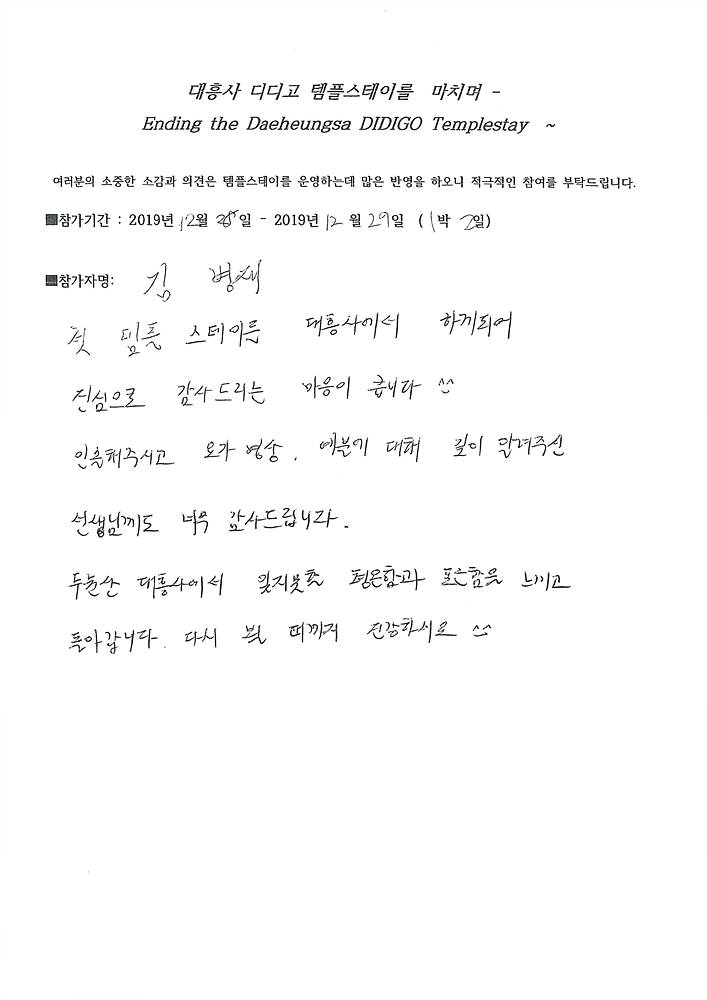 대흥사 디디고 템플스테이를 마치며 -
Ending the Daeheungsa DIDIGO Templestay ~
여러분의 소중한 소감과 의견은 템플스테이를 운영하는데 많은 반영을 하오니 적극적인 참여를 부탁드립니다.
■참가기간 : 2019년 12월 28일 - 2019년 12월 29일 (1박 2일)
■참가자명: 김 병재
첫 템플 스테이를 대흥사에서 하게되어
진심으로 감사드리는 마음이 큽니다 ^^
인솔해주시고 요가 명상, 예불에 대해 깊이 알려주신
선생님께도 너무 감사드립니다.
두륜산 대흥사에서 잊지못할 평온함과 포근함을 느끼고
돌아갑니다. 다시 뵐 때까지 건강하시요 ^^